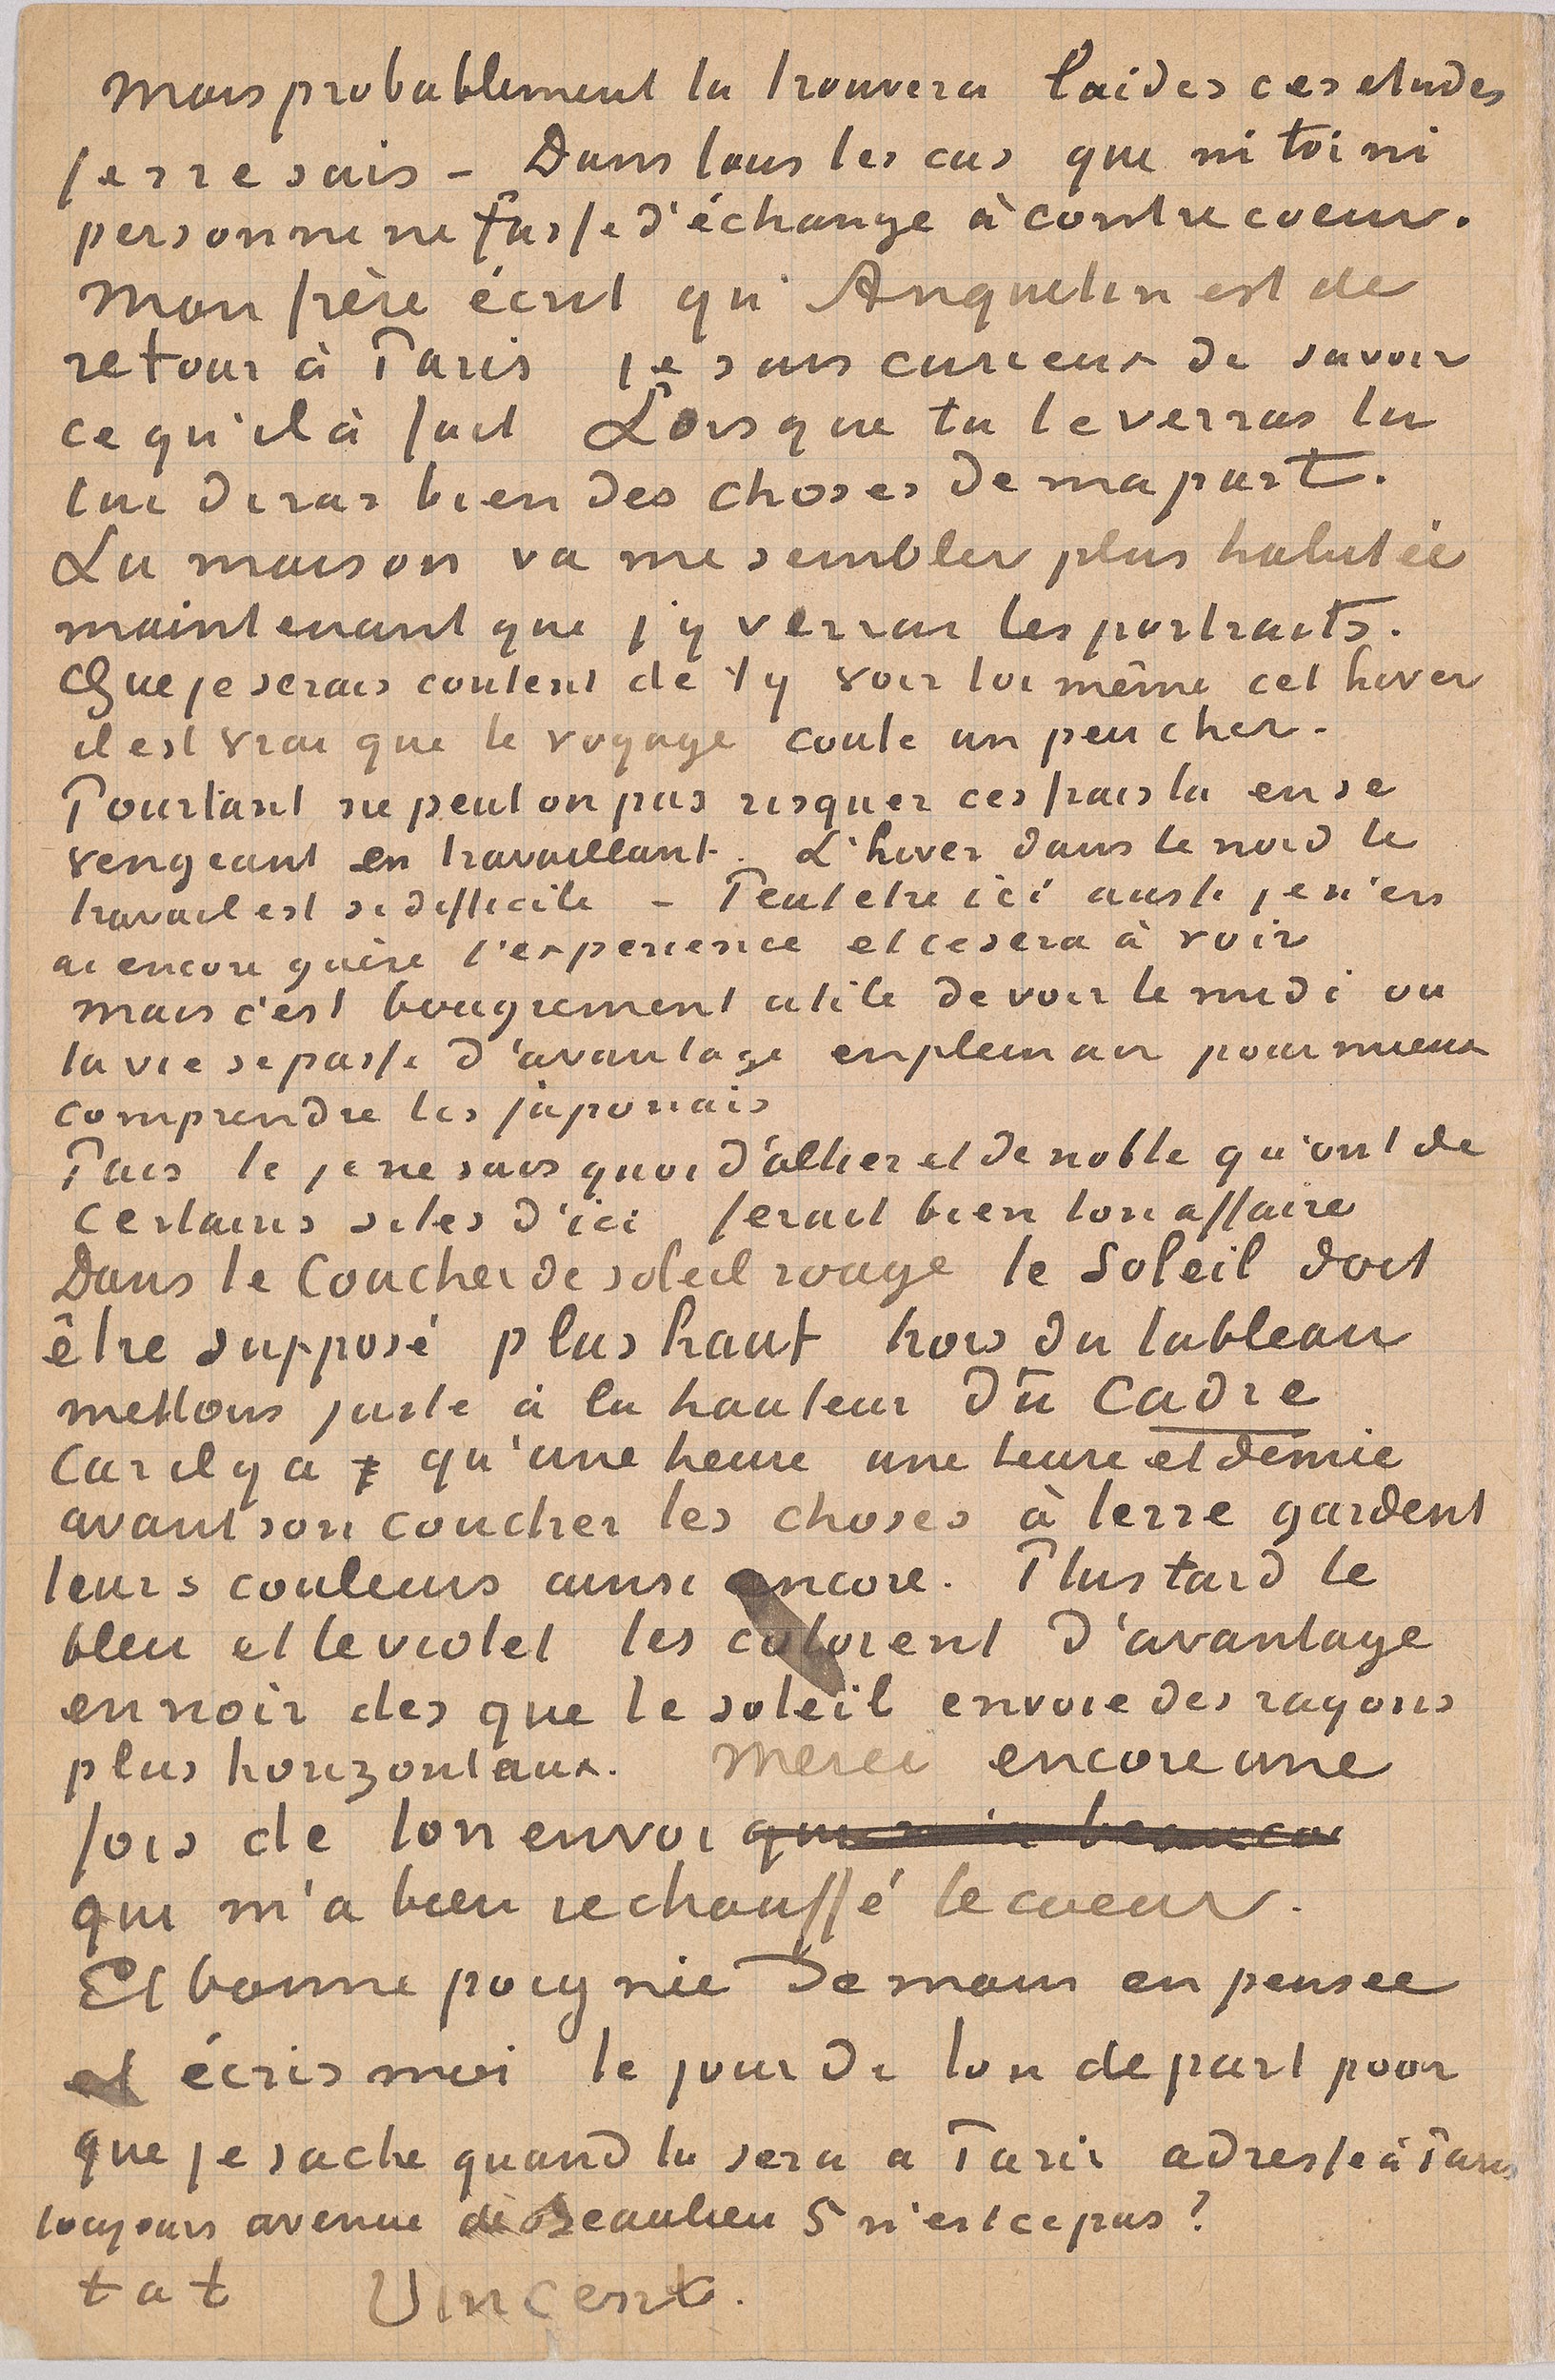 mais probablement tu trouvera laides ces etudes
je ne sais – Dans tous les cas que ni toi ni
personne ne fasse d'échange à contre coeur.
Mon frère écrit qu'Anquetin est de
retour à Paris je suis curieux de savoir
ce qu'il à fait Lorsque tu le verras tu
lui diras bien des choses de ma part.
La maison va me sembler plus habitée
maintenant que j'y verrai les portraits.
Que je serais content de t'y voir toi même cet hiver
il est vrai que le voyage coute un peu cher.
Pourtant ne peut on pas risquer ces frais la en se
vengeant en travaillant. L'hiver dans le nord le
travail est si difficile – Peut etre ici aussi je n'en
ai encore guère l'experience et ce sera à voir
mais c'est bougrement utile de voir le midi ou
la vie se passe d'avantage en plein air pour mieux
comprendre les japonais
Puis le je ne sais quoi d'altier et de noble qu'ont de
certains sites d'ici ferait bien ton affaire
Dans le Coucher de soleil rouge le Soleil doit
être supposé plus haut hors du tableau
mettons juste à la hauteur du cadre
Car il y a qu'une heure une heure et demie
avant son coucher les choses à terre gardent
leurs couleurs ainsi encore. Plus tard le
bleu et le violet les colorent d'avantage
en noir des que le soleil envoie des rayons
plus horizontaux. Merci encore une
fois de ton envoi
qui m'a bien rechauffé le coeur.
Et bonne poignée de main en pensee
et écris moi le jour de ton depart pour
que je sache quand tu sera a Paris adresse à Paris
toujours avenue de Beaulieu 5 n'est ce pas?
t a t Vincent.